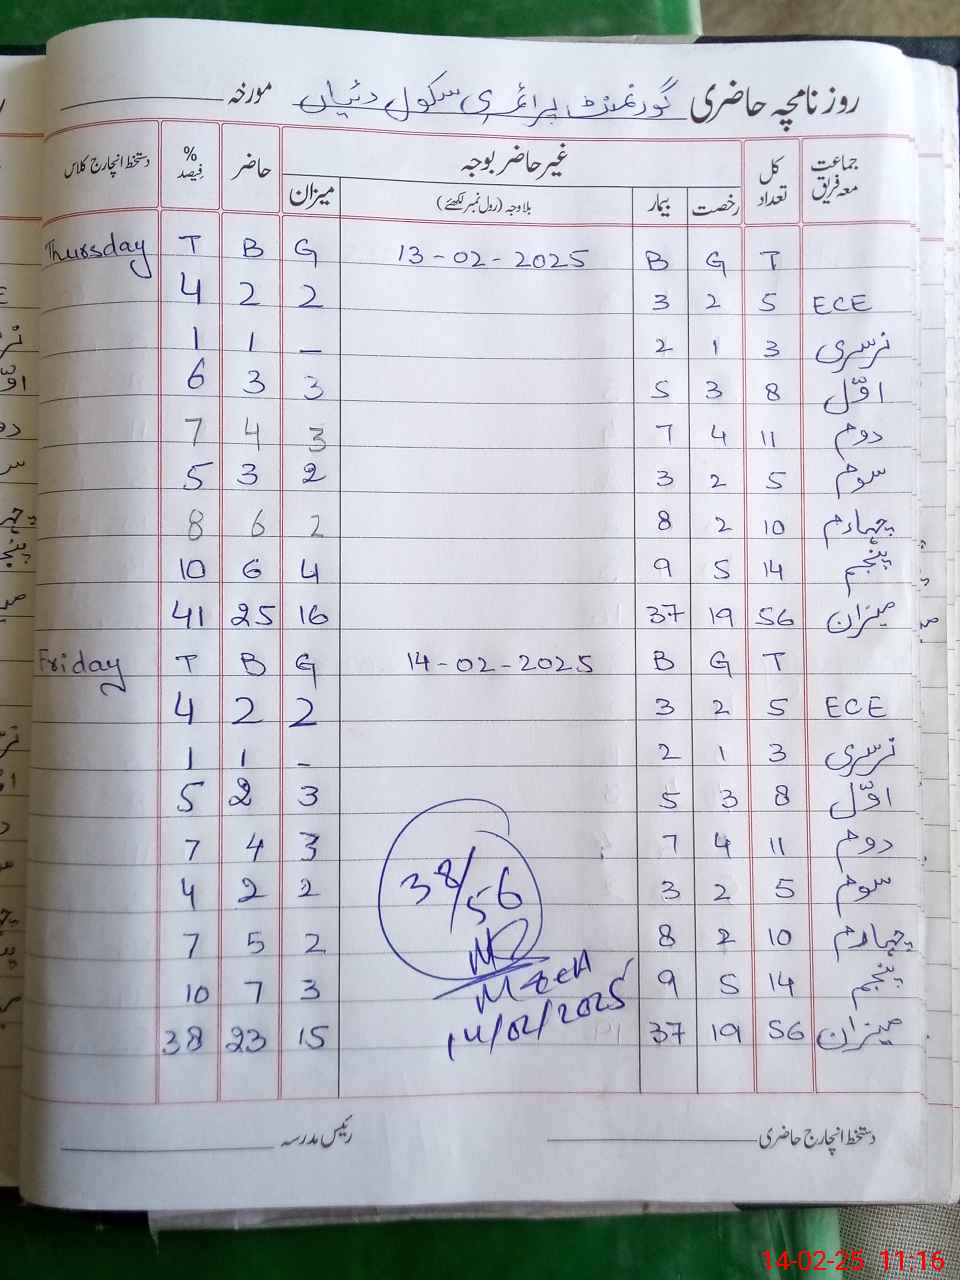 روزنامچہ حاضری گورنمنٹ پرائمری سکول دئیاں مورخہ
جماعت معہ فریق کل تعداد غیر حاضر بوجہ حاضر % فیصد دستخط انچارج کلاس
رخصت بیمار بلاوجہ (رول نمبر لکھئے) میزان
Thursday T B G 13-02-2025 B G T
4 2 2 3 2 5 ECE
1 1 – 2 1 3 نرسری
6 3 3 5 3 8 اوّل
7 4 3 7 4 11 دوم
5 3 2 3 2 5 سوم
8 6 2 8 2 10 چہارم
10 6 4 9 5 14 پنجم
41 25 16 37 19 56 میزان
Friday T B G 14-02-2025 B G T
4 2 2 3 2 5 ECE
1 1 – 2 1 3 نرسری
5 2 3 5 3 8 اوّل
7 4 3 7 4 11 دوم
4 2 2 3 2 5 سوم
7 5 2 8 2 10 چہارم
10 7 3 9 5 14 پنجم
38 23 15 37 19 56 میزان
38/56
14/02/2025
دستخط انچارج حاضری رئیس مدرسہ
14-02-25 11:16